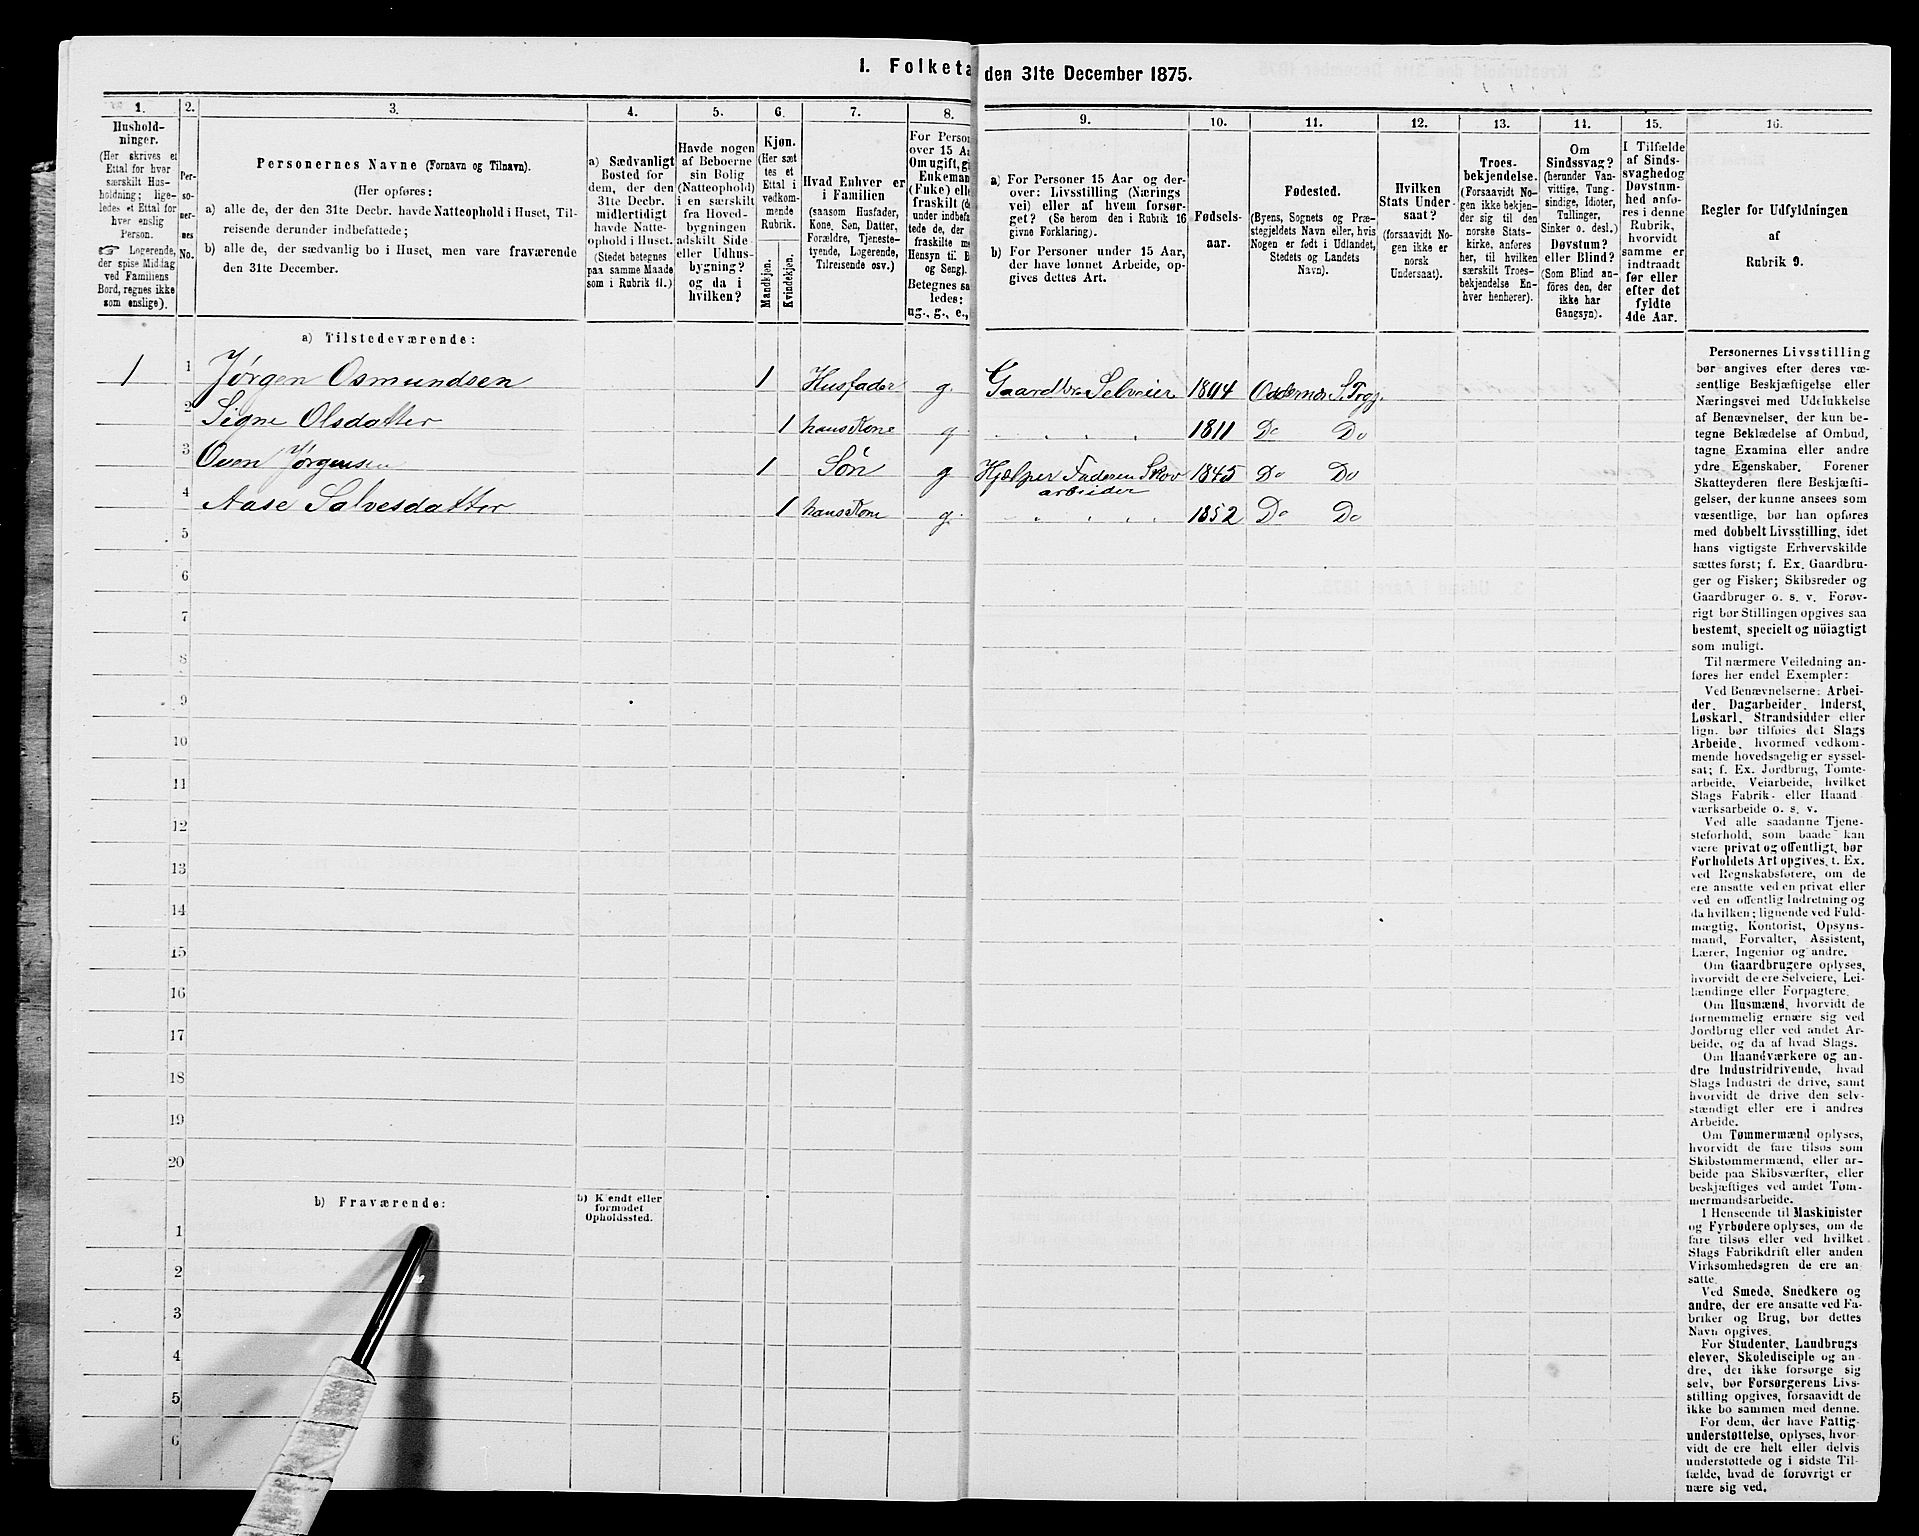 1. Folketæ den 31te December 1875.
1.
Hushold-
ninger.
(Her skrives et
Ettal for hver
særskilt Hus-
holdning; lige-
ledes et Ettal for
hver enslig
Person.
☞ Logerende,
der spise Middag
ved Familiens
Bord, regnes ikke
som enslige).
2.
Per-
so-
ner-
nes
No.
3.
Personernes Navne (Fornavn og Tilnavn).
(Her opføres:
a) alle de, der den 31te Decbr. havde Natteophold i Huset, Til-
reisende derunder indbefattede;
b) alle de, der sædvanlig bo i Huset, men vare fraværende
den 31te December.
4.
a) Sædvanligt
Bosted for
dem, der den
31te Decbr.
midlertidigt
havde Natte-
ophold i Huset.
(Stedet betegnes
paa samme Maade
som i Rubrik 11.)
5.
Havde nogen
af Beboerne
sin Bolig
(Natteophold)
i en særskilt
fra Hoved-
bygningen
adskilt Side-
eller Udhus-
bygning?
og da i
hvilken?
6.
Kjøn.
(Her sæt-
tes et
Ettal i
vedkom-
mende
Rubrik.
Mandkjøn.
Kvindekjøn.
7.
Hvad Enhver er
i Familien
(saasom Husfader,
Kone, Søn, Datter,
Forældre, Tjeneste-
tyende, Logerende,
Tilreisende osv.)
8.
For Person
over 15 Aa
Om ugift, gi
Enkeman
(Enke) elle
fraskilt (de
under indbefa
tede de, der
fraskilte m
Hensyn til B
og Seng).
Betegnes sa
ledes:
ug., g., e.,
9.
a) For Personer 15 Aar og der-
over: Livsstilling (Nærings-
vei) eller af hvem forsør-
get? (Se herom den i Rubrik 16
givne Forklaring).
b) For Personer under 15 Aar,
der have lønnet Arbeide, op-
gives dettes Art.
10.
Fødsels-
aar.
11.
Fødested.
(Byens, Sognets og Præ-
stegjeldets Navn eller, hvis
Nogen er født i Udlandet,
Stedets og Landets
Navn).
12.
Hvilken
Stats Under-
saat?
(forsaavidt No-
gen ikke er
norsk
Undersaat).
13.
Troes-
bekjendelse.
(Forsaavidt No-
gen ikke bekjen-
der sig til den
norske Stats-
kirke, anføres
her, til hvilken
særskilt Troes-
bekjendelse En-
hver henhører).
14.
Om
Sindssvag?
(herunder Van-
vittige, Tung-
sindige, Idioter,
Tullinger,
Sinker o. desl.)
Døvstum?
eller Blind?
(Som Blind an-
føres den, der
ikke har
Gangsyn).
15.
I Tilfælde
af Sinds-
svaghed og
Døvstum-
hed anfø-
res i denne
Rubrik,
hvorvidt
samme er
indtraadt
før eller
efter det
fyldte
4de Aar.
16.
Regler for Udfyldningen
af
Rubrik 9.
a) Tilstedeværende:
1 1 Jørgen Osmundsen 1 Husfader g. Gaardbr. Selveier 1804 Oddernes S. Prgj.
2 Signe Olsdatter 1 hans Kone g " " " 1811 Do Do
3 Oven Jørgensen 1 Søn g Hjælper Faderen Skov 1845 Do Do
arbeider
4 Aase Salvesdatter 1 hans Kone g. " " " 1852 Do Do
5
6
7
8
9
10
11
12
13
14
15
16
17
18
19
20
b) Fraværende:
b) Kjendt eller
formodet
Opholdssted.
1
2
3
4
5
6
Personernes Livsstilling
bør angives efter deres væ-
sentlige Beskjæftigelse eller
Næringsvei med Udelukkelse
af Benævnelser, der kun be-
tegne Beklædelse af Ombud,
tagne Examina eller andre
ydre Egenskaber. Forener
Skatteyderen flere Beskjæfti-
gelser, der kunne ansees som
væsentlige, bør han opføres
med dobbelt Livsstilling, idet
hans vigtigste Erhvervskilde
sættes først; f. Ex. Gaardbru-
ger og Fisker; Skibsreder og
Gaardbruger o. s. v. Forøv-
rigt bør Stillingen opgives saa
bestemt, specielt og nöiagtigt
som muligt.
Til nærmere Veiledning an-
føres her endel Exempler:
Ved Benævnelserne: Arbei-
der, Dagarbeider, Inderst,
Løskarl, Strandsidder eller
lign. bør tilføies det Slags
Arbeide, hvormed vedkom-
mende hovedsagelig er syssel-
sat; f. Ex. Jordbrug, Tomte-
arbeide, Veiarbeide, hvilket
Slags Fabrik- eller Haand
værksarbeide o. s. v.
Ved alle saadanne Tjene-
steforhold, som baade kan
være privat og offentligt, bør
Forholdets Art opgives, f. Ex.
ved Regnskabsførere, om de
ere ansatte ved en privat eller
ved en offentlig Indretning og
da hvilken; lignende ved Fuld-
mægtig, Kontorist, Opsyns-
mand, Forvalter, Assistent,
Lærer, Ingeniør og andre.
Om Gaardbrugere oplyses,
hvorvidt de ere Selveiere, Lei-
lændinge eller Forpagtere.
Om Husmænd, hvorvidt de
fornemmelig ernære sig ved
Jordbrug eller ved andet Ar-
beide, og da af hvad Slags.
Om Haandværkere og an-
dre Industridrivende, hvad
Slags Industri de drive, samt
hvorvidt de drive den selv-
stændigt eller ere i andres
Arbeide.
Om Tømmermænd oplyses,
hvorvidt de fare tilsøs som
Skibstømmermænd, eller ar-
beide paa Skibsværfter, eller
beskjæftiges ved andet Tøm-
mermandsarbeide.
I Henseende til Maskinister
og Fyrbødere oplyses, om de
fare tilsøs eller ved hvilket
Slags Fabrikdrift eller anden
Virksomhedsgren de ere an-
satte.
Ved Smede, Snedkere og
andre, der ere ansatte ved Fa-
briker og Brug, bør dettes
Navn opgives.
For Studenter, Landbrugs-
elever, Skoledisciple og an-
dre, der ikke forsørge sig
selv, bør Forsørgerens Livs-
stilling opgives, forsaavidt de
ikke bo sammen med denne.
For dem, der have Fattig-
understøttelse, oplyses, hvor-
vidt de ere helt eller delvis
understøttede og i sidste Til-
fælde, hvad de forøvrigt er
nære sig ved.